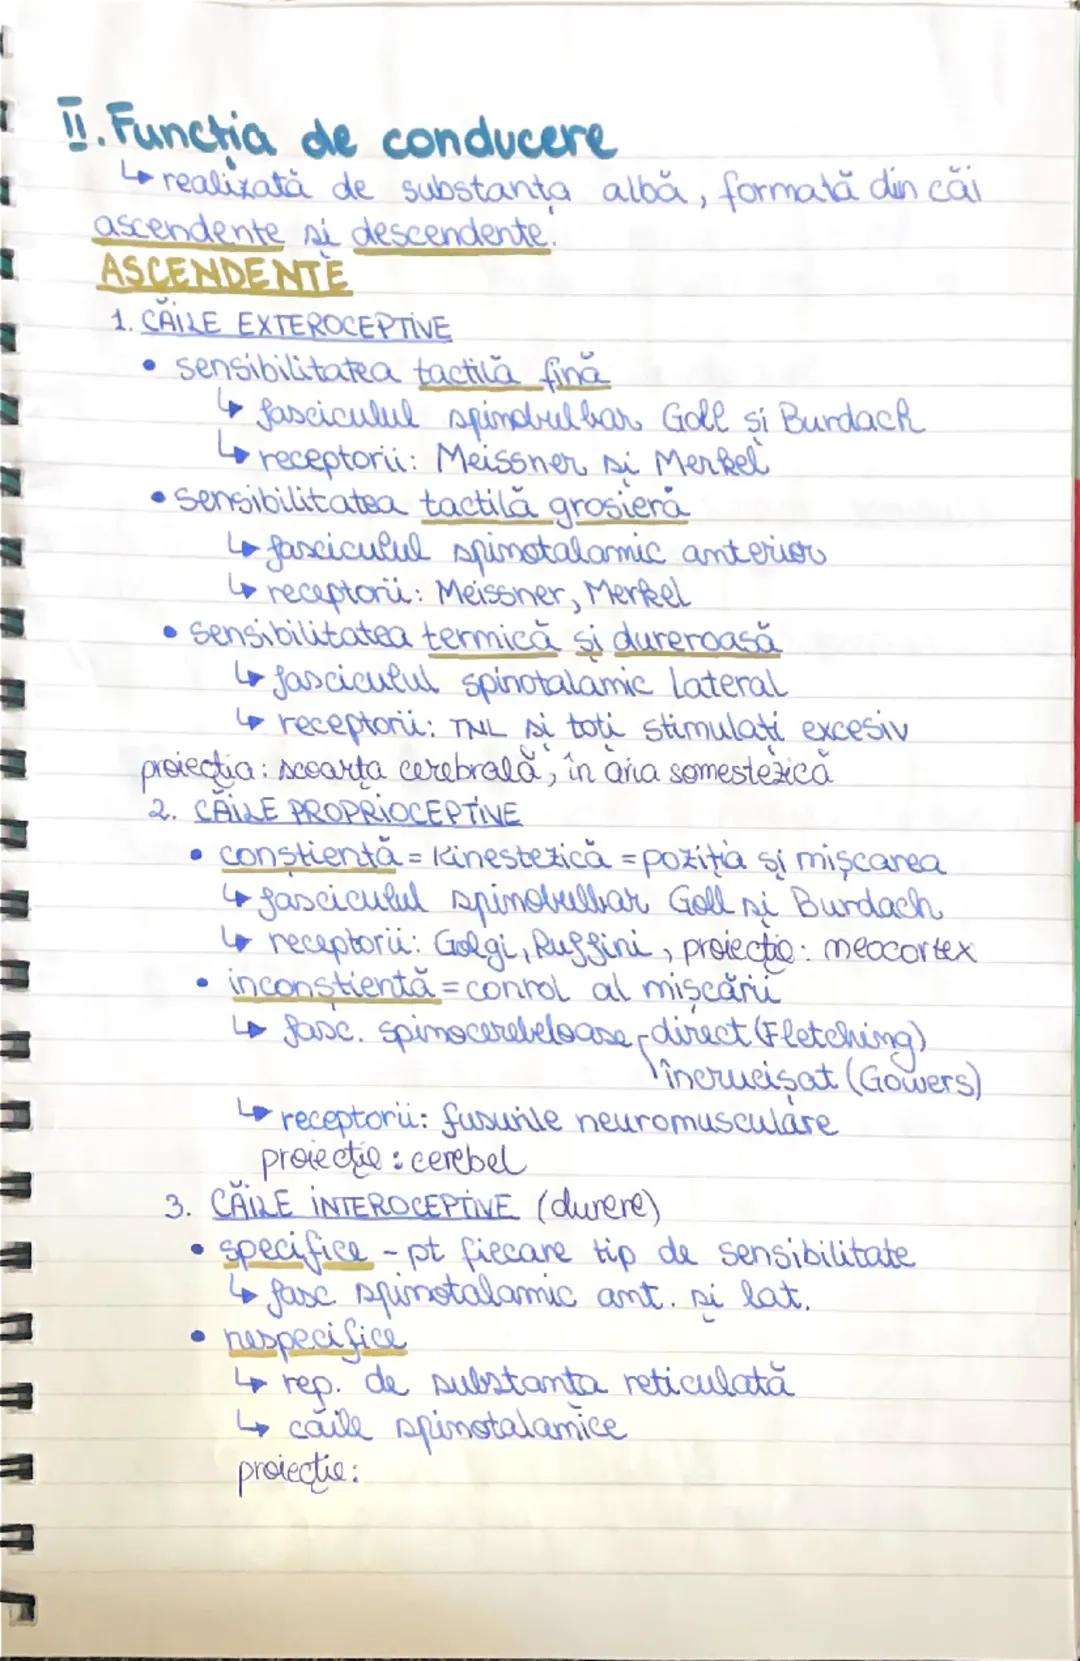 II. Funcția de conducere
↳ realizată de substanța albă, formată din căi
ascendente și descendente.
ASCENDENTE
1. CĂILE EXTEROCEPTIVE
• sensibilitatea tactilă fină
↳ fasciculul spinobulbar Goll și Burdach
↳ receptorii: Meissner și Merkel
• sensibilitatea tactilă grosieră
↳ fasciculul spinotalamic anterior
↳ receptorii: Meissner, Merkel
• sensibilitatea termică și dureroasă
↳ fasciculul spinotalamic lateral
↳ receptorii: TNL și toți stimulați excesiv
proiecția: scoarța cerebrală, în aria somestezică
2. CĂILE PROPRIOCEPTIVE
• conștientă = kinestezică = poziția și mișcarea
↳ fasciculul spinobulbar Goll și Burdach
↳ receptorii: Golgi, Ruffini, proiecție: neocortex
• inconștientă = conrol al mișcării
↳ fasc. spinocerebeloase direct (Fletching)
încrucișat (Gowers)
↳ receptorii: fusurile neuromusculare
proiecție: cerebel
3. CĂILE INTEROCEPTIVE (durere)
• specifice - pt fiecare tip de sensibilitate
↳ fasc. spinotalamic ant. și lat.
• nespecifice
↳ rep. de substanța reticulată
↳ căile spinotalamice
proiecție: